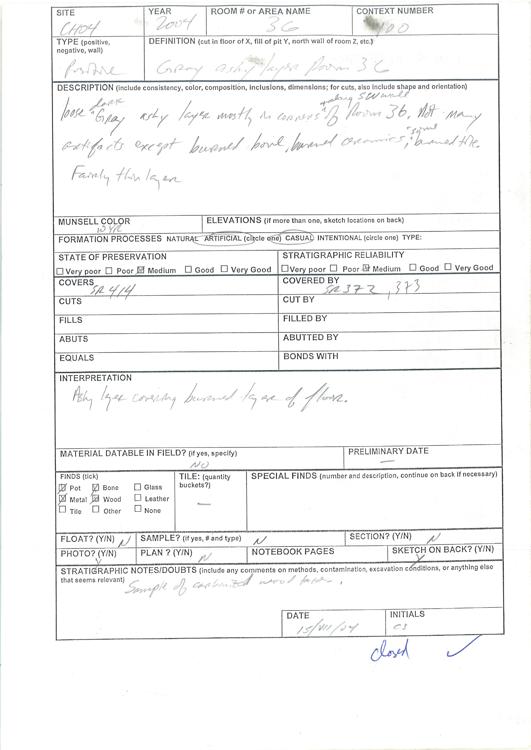 SITE YEAR ROOM # or AREA NAME CONTEXT NUMBER
CH04 2004 36 400
TYPE (positive, negative, wall) DEFINITION (cut in floor of X, fill of pit Y, north wall of room Z, etc.)
Positive Gray ashy layer Room 36
DESCRIPTION (include consistency, color, composition, inclusions, dimensions; for cuts, also include shape and orientation)
loose dark Gray ashy layer mostly in corners along SW wall of Room 36. Not many
artifacts except burned bowl, burned ceramics, some burned tile.
Fairly thin layer
MUNSELL COLOR ELEVATIONS (if more than one, sketch locations on back)
FORMATION PROCESSES NATURAL ARTIFICIAL (circle one) CASUAL INTENTIONAL (circle one) TYPE:
STATE OF PRESERVATION STRATIGRAPHIC RELIABILITY
Very poor Poor Medium Good Very Good Very poor Poor Medium Good Very Good
COVERS SR 414 COVERED BY SR 372, 373
CUTS CUT BY
FILLS FILLED BY
ABUTS ABUTTED BY
EQUALS BONDS WITH
INTERPRETATION
Ashy layer covering burned layer of floor.
MATERIAL DATABLE IN FIELD? (if yes, specify) PRELIMINARY DATE
NO —
FINDS (tick) TILE: (quantity buckets?) SPECIAL FINDS (number and description, continue on back if necessary)
Pot Bone Glass
Metal Wood Leather —
Tile Other None
FLOAT? (Y/N) N SAMPLE? (if yes, # and type) N SECTION? (Y/N) N
PHOTO? (Y/N) Y PLAN? (Y/N) N NOTEBOOK PAGES SKETCH ON BACK? (Y/N) Y
STRATIGRAPHIC NOTES/DOUBTS (include any comments on methods, contamination, excavation conditions, or anything else
that seems relevant) Sample of carbonized wood taken.
DATE INITIALS
15/VII/04 CS
closed ✓